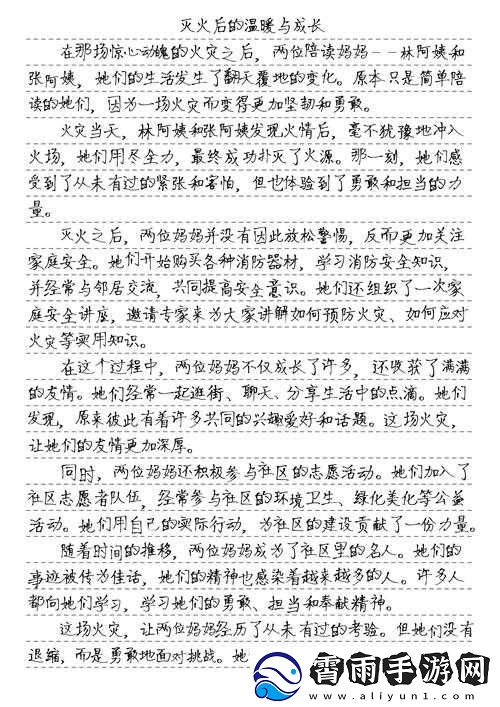 灭火后的温暖与成长
在那场惊心动魄的火灾之后，两位陪读妈妈——林阿姨和
张阿姨，她们的生活发生了翻天覆地的变化。原本只是简单陪
读的她们，因为一场火灾而变得更加坚韧和勇敢。
火灾当天，林阿姨和张阿姨发现火情后，毫不犹豫地冲入
火场，她们用尽全力，最终成功扑灭了火源。那一刻，她们感
受到了从未有过的紧张和害怕，但也体验到了勇敢和担当的力
量。
灭火之后，两位妈妈并没有因此放松警惕，反而更加关注
家庭安全。她们开始购买各种消防器材，学习消防安全知识，
并经常与邻居交流，共同提高安全意识。她们还组织了一次家
庭安全讲座，邀请专家来为大家讲解如何预防火灾、如何应对
火灾等实用知识。
在这个过程中，两位妈妈不仅成长了许多，还收获了满满
的友情。她们经常一起逛街、聊天、分享生活中的点滴。她们
发现，原来彼此有着许多共同的兴趣爱好和话题。这场火灾，
让她们的友情更加深厚。
同时，两位妈妈还积极参与社区的志愿活动。她们加入了
社区志愿者队伍，经常参与社区的环境卫生、绿化美化等公益
活动。她们用自己的实际行动，为社区的建设贡献了一份力量。
随着时间的推移，两位妈妈成为了社区里的名人。她们的
事迹被传为佳话，她们的精神也感染着越来越多的人。许多人
都向她们学习，学习她们的勇敢、担当和奉献精神。
这场火灾，让两位妈妈经历了从未有过的考验。但她们没有
退缩，而是勇敢地面对挑战。她
霄雨手游网
www.aliyun1.com